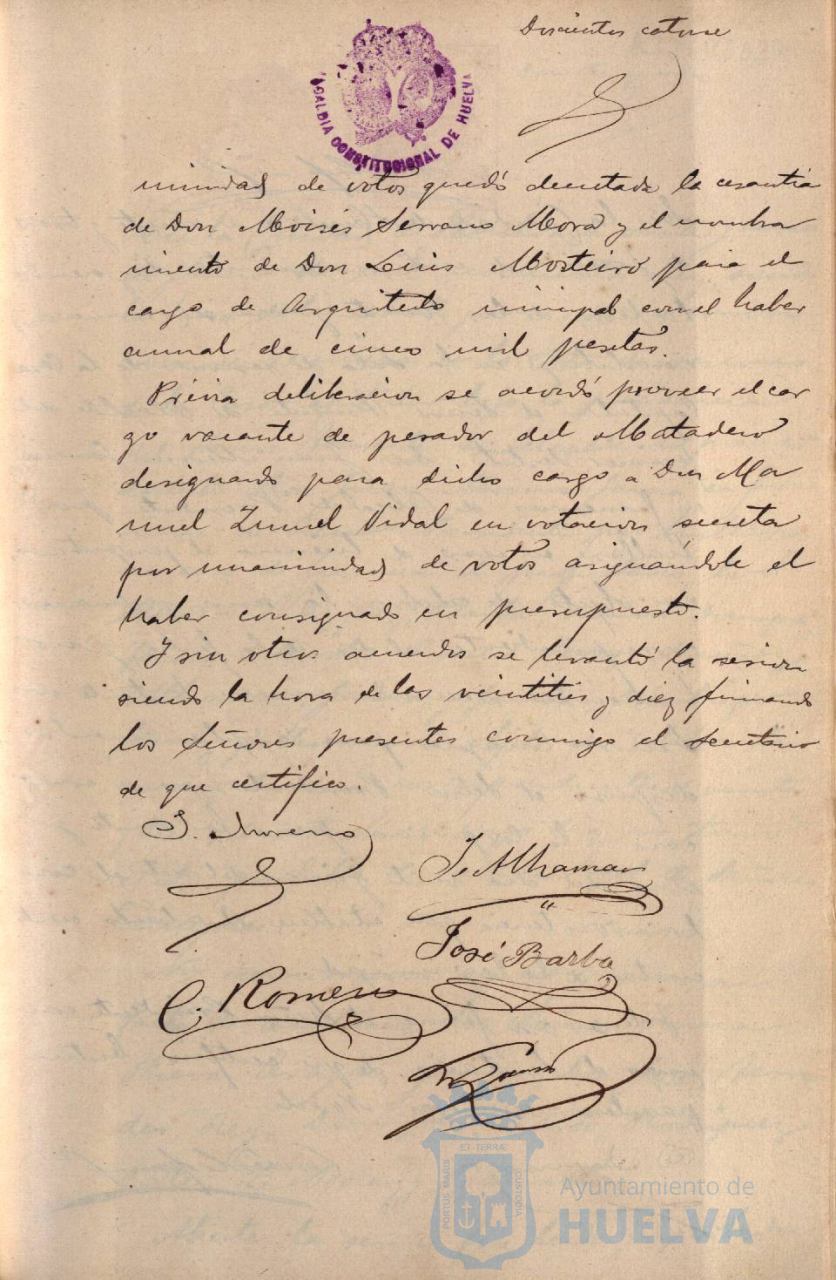 Doscientos catorce
ALCALDIA CONSTITUCIONAL DE HUELVA
nimidad de votos quedó decretada la cesantía
de Don Moisés Serrano Mora y el nombra
miento de Don Luis Mosteiro para el
cargo de Arquitecto municipal con el haber
anual de cinco mil pesetas.
Prévia deliberacion se acordó proveer el car
go vacante de pesador del Matadero
designando para dicho cargo a Don Ma
nuel Zunel Vidal en votacion secreta
por unanimidad de votos asignándole el
haber consignado en presupuesto.
Y sin otros acuerdos se levantó la sesion
siendo la hora de las veintitres y diez firmando
los Señores presentes conmigo el Secretario
de que certifico.
Moreno
José Barba
C. Romero
ET TERRÆ
PORTUS MARIS
CUSTODIA
Ayuntamiento de
HUELVA